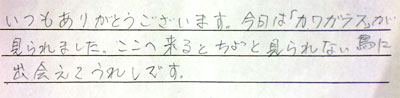 いつもありがとうございます。今日は「カワガラス」が
見られました。ここへ来るとちょっと見られない鳥に
出会えてうれしいです。